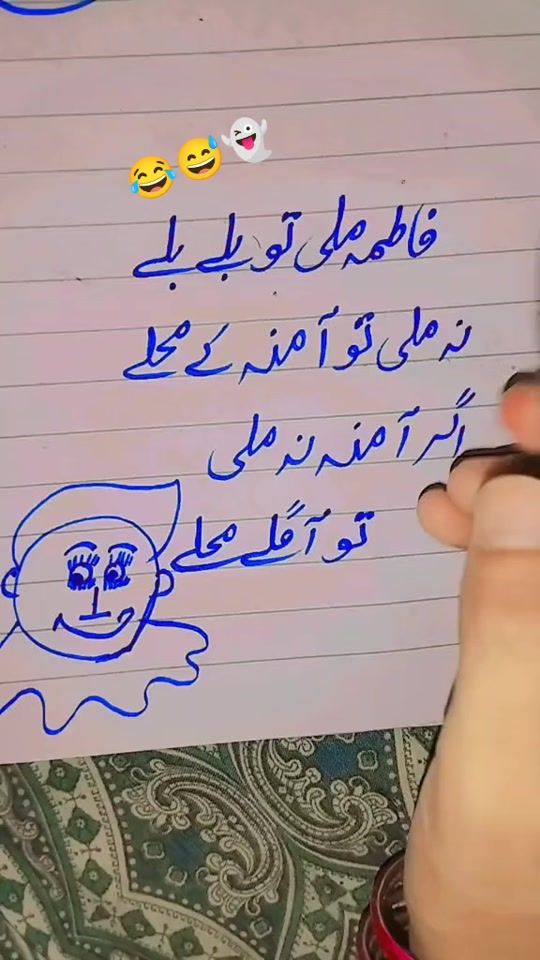 😂😅👻
فاطمہ ملی تو بلے بلے
نہ ملی تو آمنہ کے محلے
اگر آمنہ نہ ملی
تو آگلے محلے